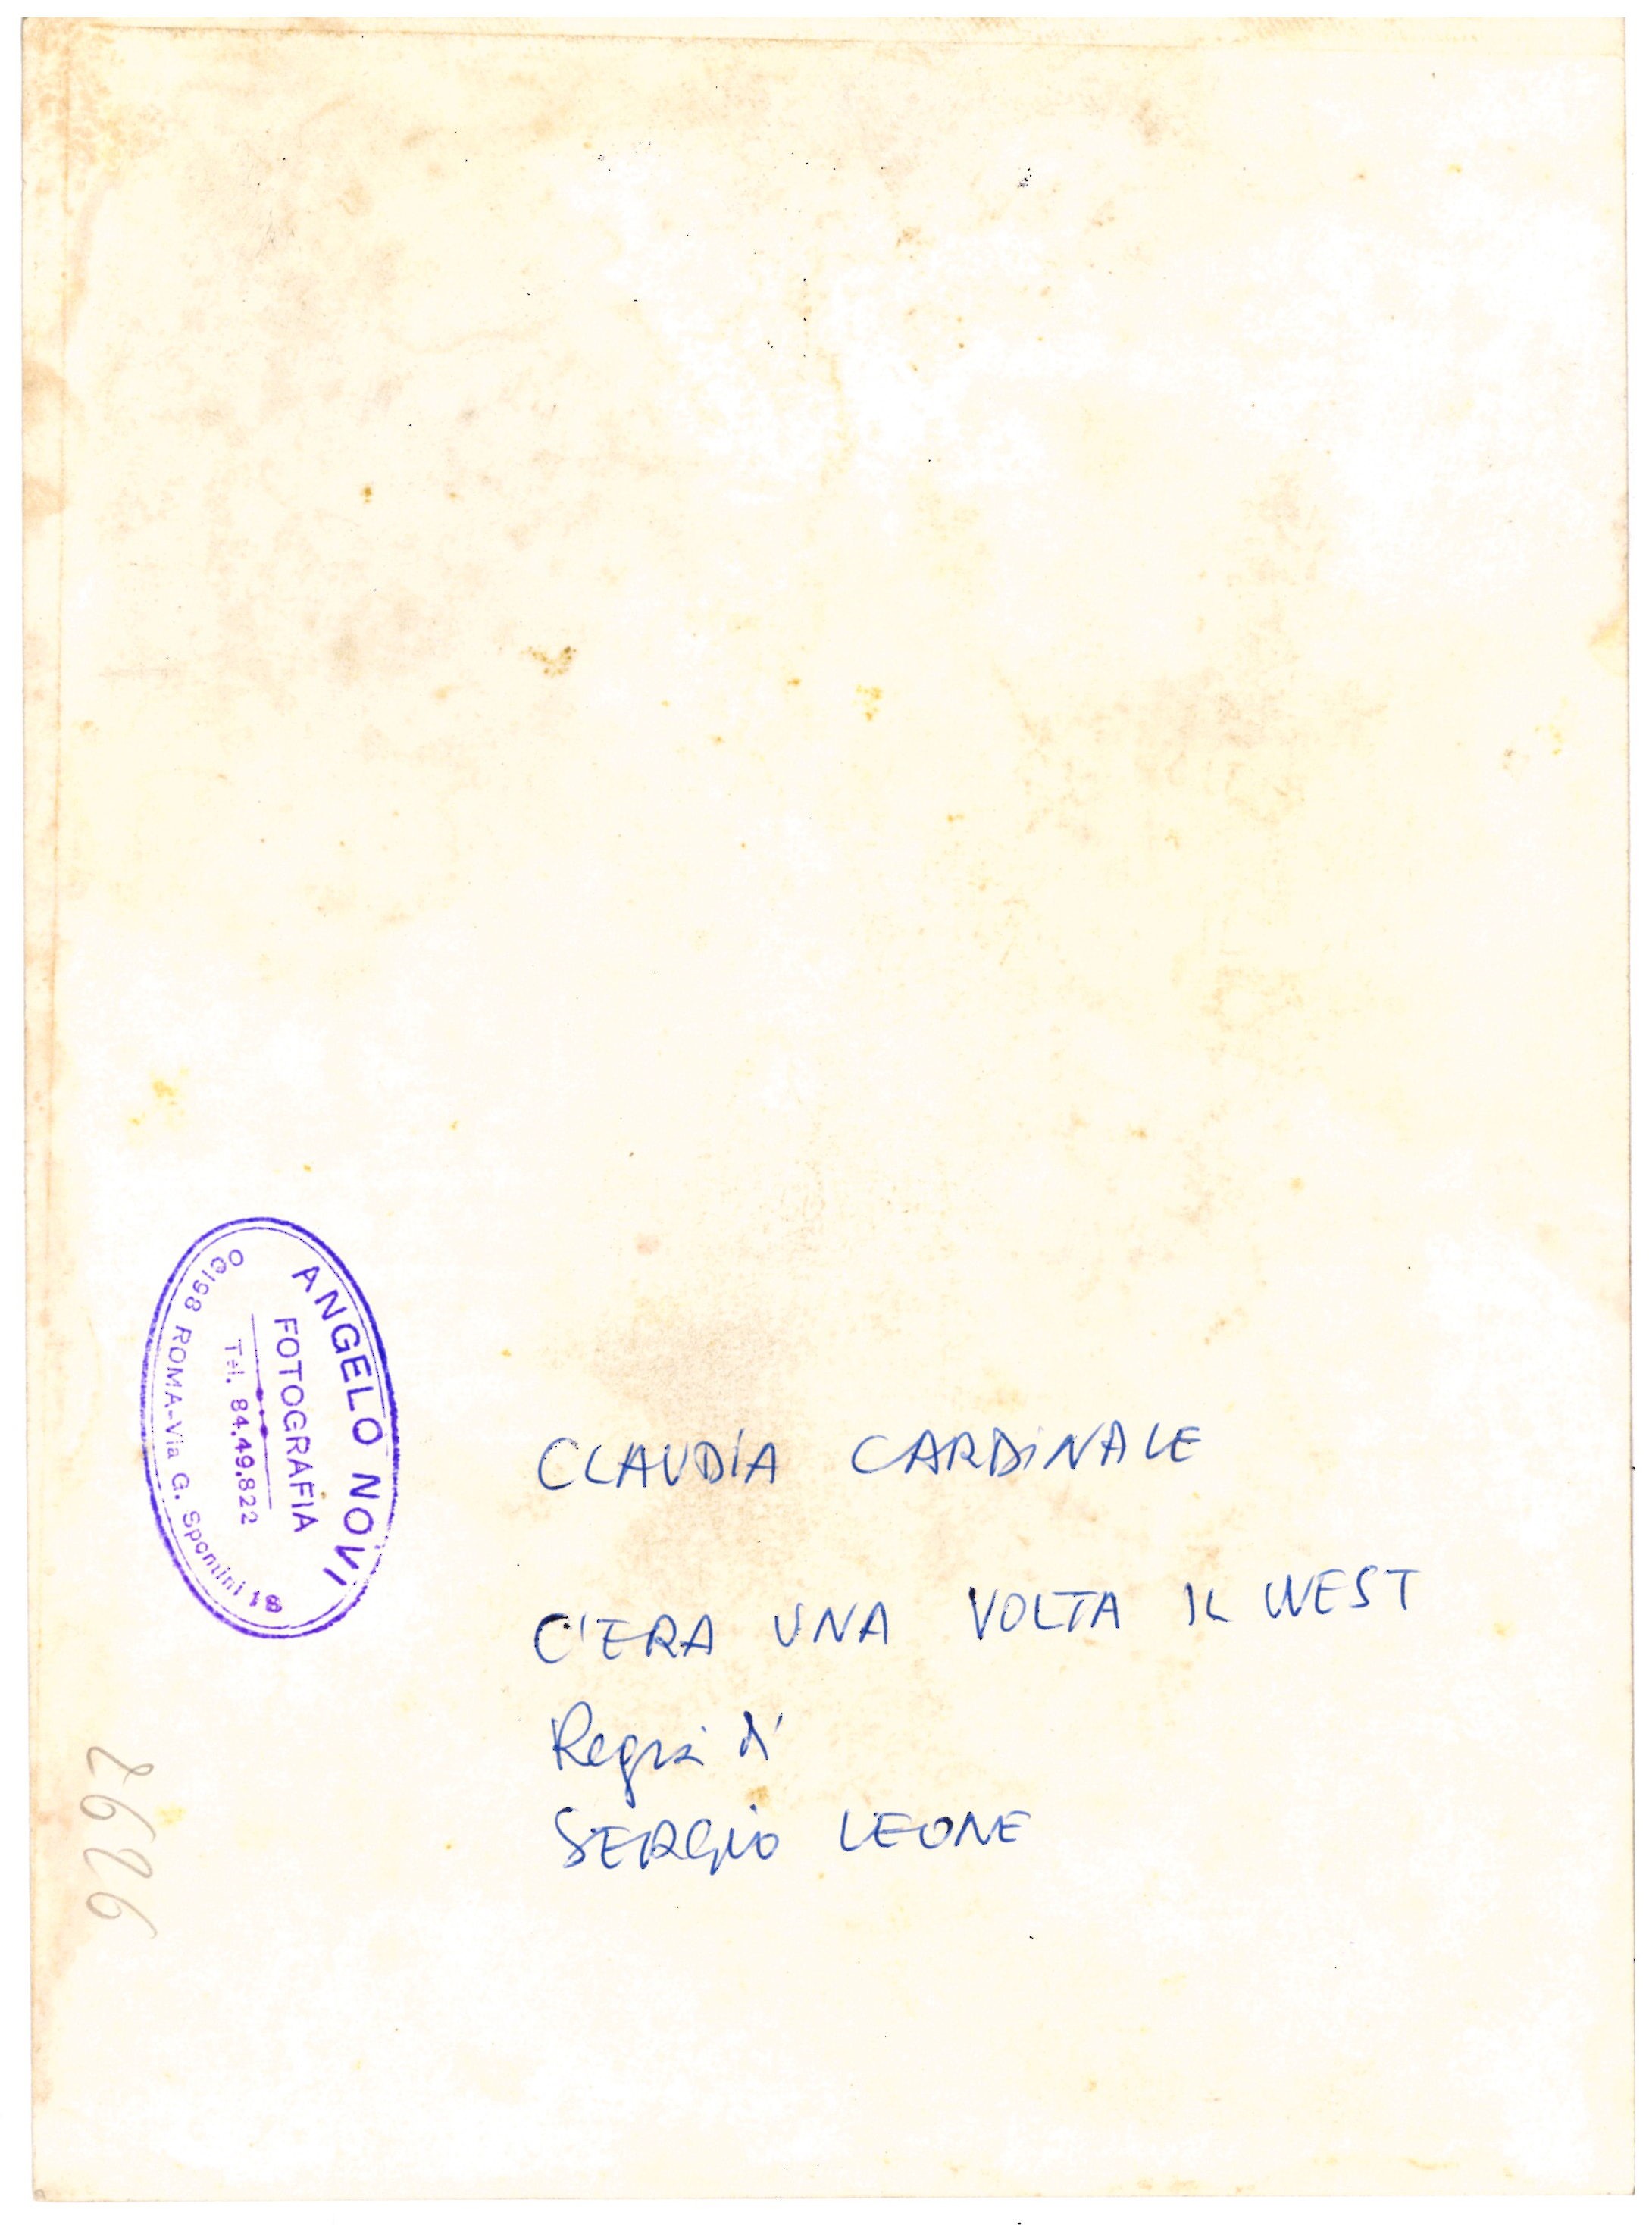 ANGELO NOVI
FOTOGRAFIA
Tel. 84.49.822
00198 ROMA-Via G. Spontini 16
CLAUDIA CARDINALE
C'ERA UNA VOLTA IL WEST
Regia di
SERGIO LEONE
2626